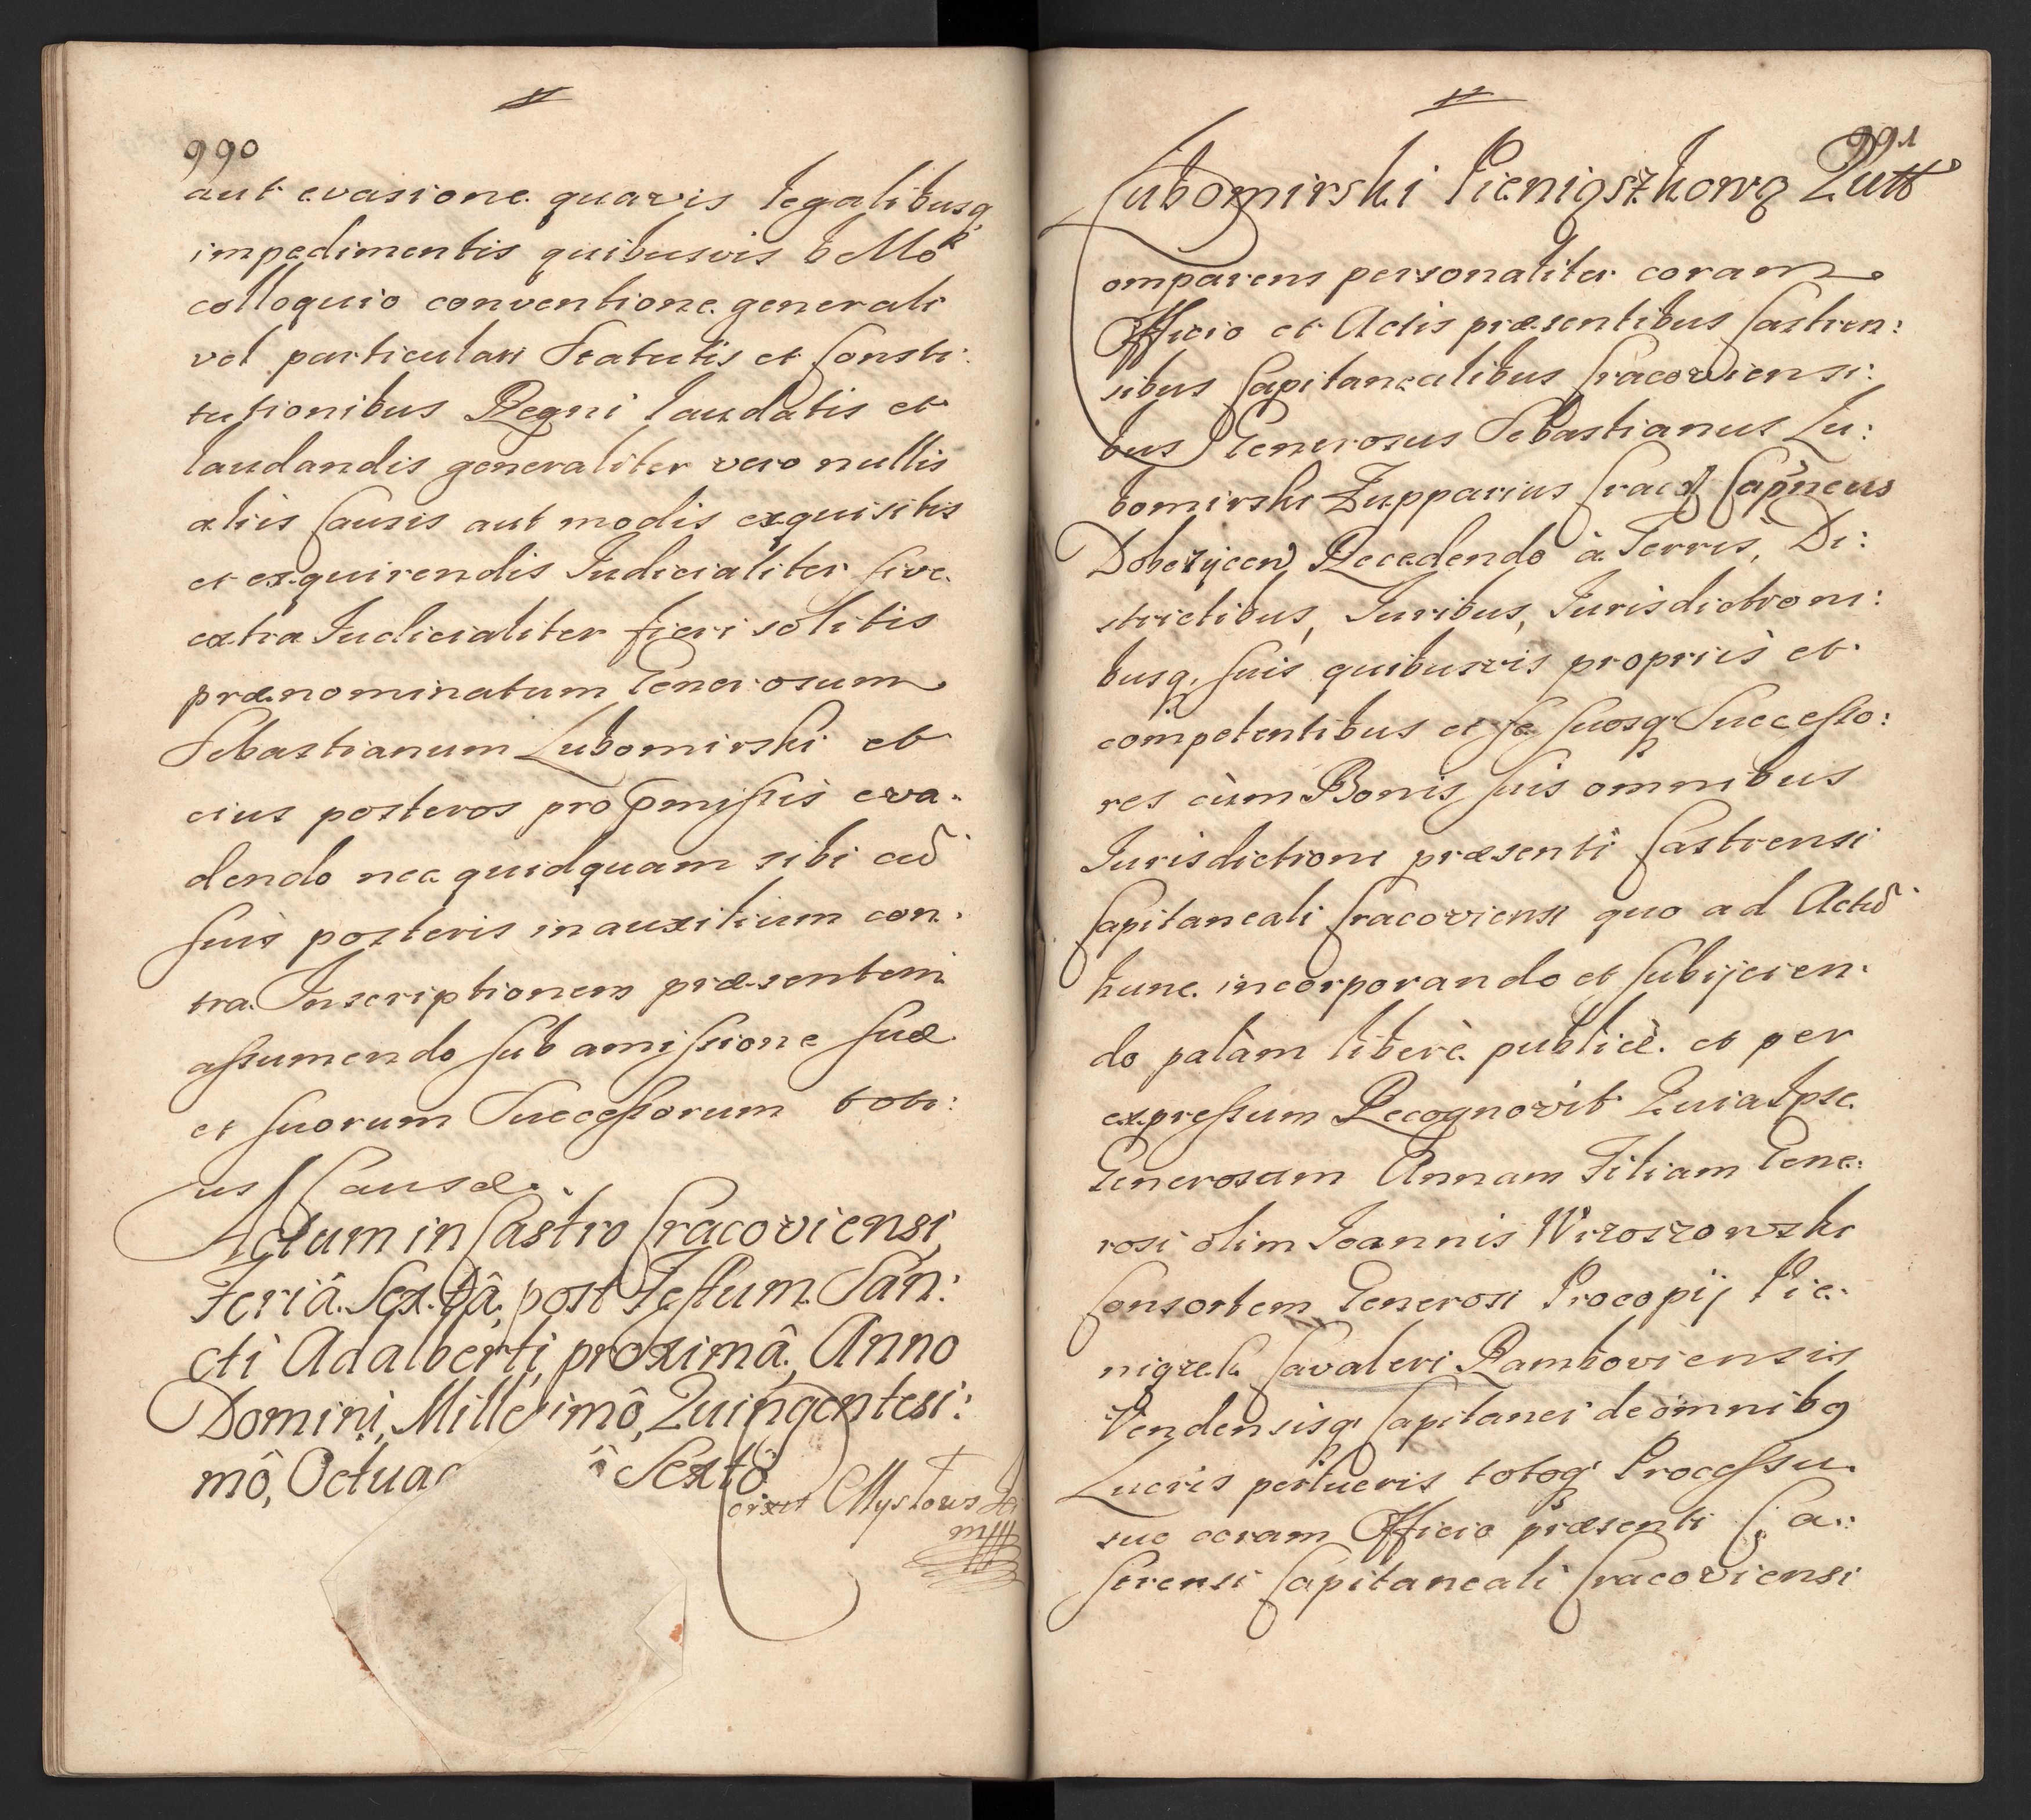 990
aut evasione quavis legalibusq
impedimentis quibusvis bello
colloquio conventione generali
vel particulari Statutis et Consti:
tutionibus Regni laudatis et
laudandis generaliter vero nullis
aliis Causis aut modis exquisitis
et exquirendis Judicialiter sive
extra Judicialiter fieri solitis
prænominatum Generosum
Sebastianum Lubomirski et
eius posteros pro præmissis eva-
dendo nec quidquam sibi aut
suis posteris in auxilium con-
tra Inscriptionem præsentem
assumendo sub amissione suæ
et suorum Successorum toti:
us Causæ.
Actum in Castro Cracoviensi
Feriâ Sextâ, post Festum San:
cti Adalberti, proximâ, Anno
Domini, Millesimô, Quingentesi:
mô, Octuag ô Sextô
Myslowski
mpp
991
Lubomirski Pieniąszkową Quitt
omparens personaliter coram
Officio et Actis præsentibus Castren:
sibus Capitanealibus Cracoviensi:
bus Generosus Sebastianus Lu:
bomirski Zupparius Crac Capneus
Dobczycen Recedendo à Terris, Di:
strictibus, Juribus, Jurisdictioni:
busq, suis quibusvis propriis et
competentibus et se suosq Successo:
res cùm Bonis suis omnibus
Jurisdictioni præsenti Castrensi
Capitaneali Cracoviensi quo ad Actū
hunc incorporando et subijcien-
do palàm liberè publicè et per
expressum Recognovit Quia Ipse
Generosam Annam Filiam Gene:
rosi olim Joannis Wrzoszowski
Consortem Generosi Procopij Pie-
niązek Cavaleri Ramboviensis
Vendensisq Capitanei de omnibq
Lucris perlucris totoq Processu
suo coram Officio præsenti Ca:
strensi Capitaneali Cracoviensi